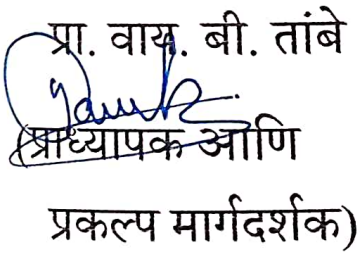 प्रा. वाय. बी. तांबे
(प्राध्यापक आणि
प्रकल्प मार्गदर्शक)